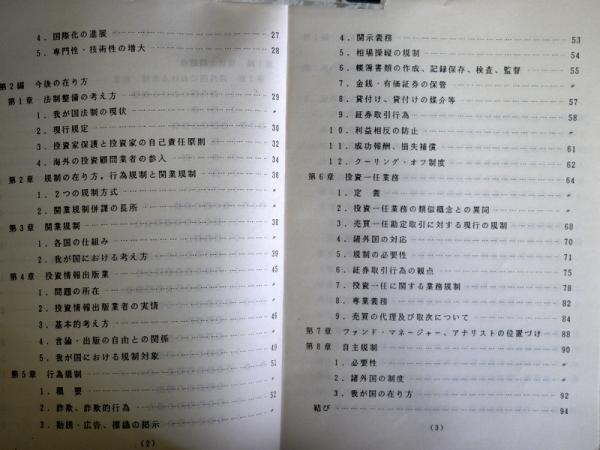 4．国際化の進展 27
5．専門性・技術性の増大 28
第2編 今後の在り方
第1章 法制整備の考え方 29
1．我が国法制の現状 〃
2．現行規定 30
3．投資家保護と投資家の自己責任原則 32
4．海外の投資顧問業者の参入 34
第2章 規制の在り方，行為規制と開業規制 36
1．2つの規制方式 〃
2．開業規制併課の長所
第3章 開業規制 38
1．各国の仕組み 〃
2．我が国における考え方 39
第4章 投資情報出版業 45
1．問題の所在 〃
2．投資情報出版業者の実情 〃
3．基本的考え方 46
4．言論・出版の自由との関係 49
5．我が国における規制対象 51
第5章 行為規制 〃
1．概要 52
2．詐欺、詐欺的行為 〃
3．勧誘・広告、標識の掲示
(2)
4．開示義務 53
5．相場操縦の規制 54
6．帳簿書類の作成、記録保存、検査、監督 55
7．金銭・有価証券の保管 〃
8．貸付け、貸付けの媒介等 57
9．証券取引行為 58
10．利益相反の防止 〃
11．成功報酬、損失補償 61
12．クーリング・オフ制度 62
第6章 投資一任業務 64
1．定義 〃
2．投資一任業務の類似概念との異同 〃
3．売買一任勘定取引に対する現行の規制 68
4．諸外国の対応 70
5．規制の必要性 71
6．証券取引行為の観点 75
7．投資一任に関する業務規制 78
8．専業義務 82
9．売買の代理及び取次について 84
第7章 ファンド・マネージャー、アナリストの位置づけ 88
第8章 自主規制 90
1．必要性 〃
2．諸外国の制度 〃
3．我が国の在り方 92
結び 94
(3)